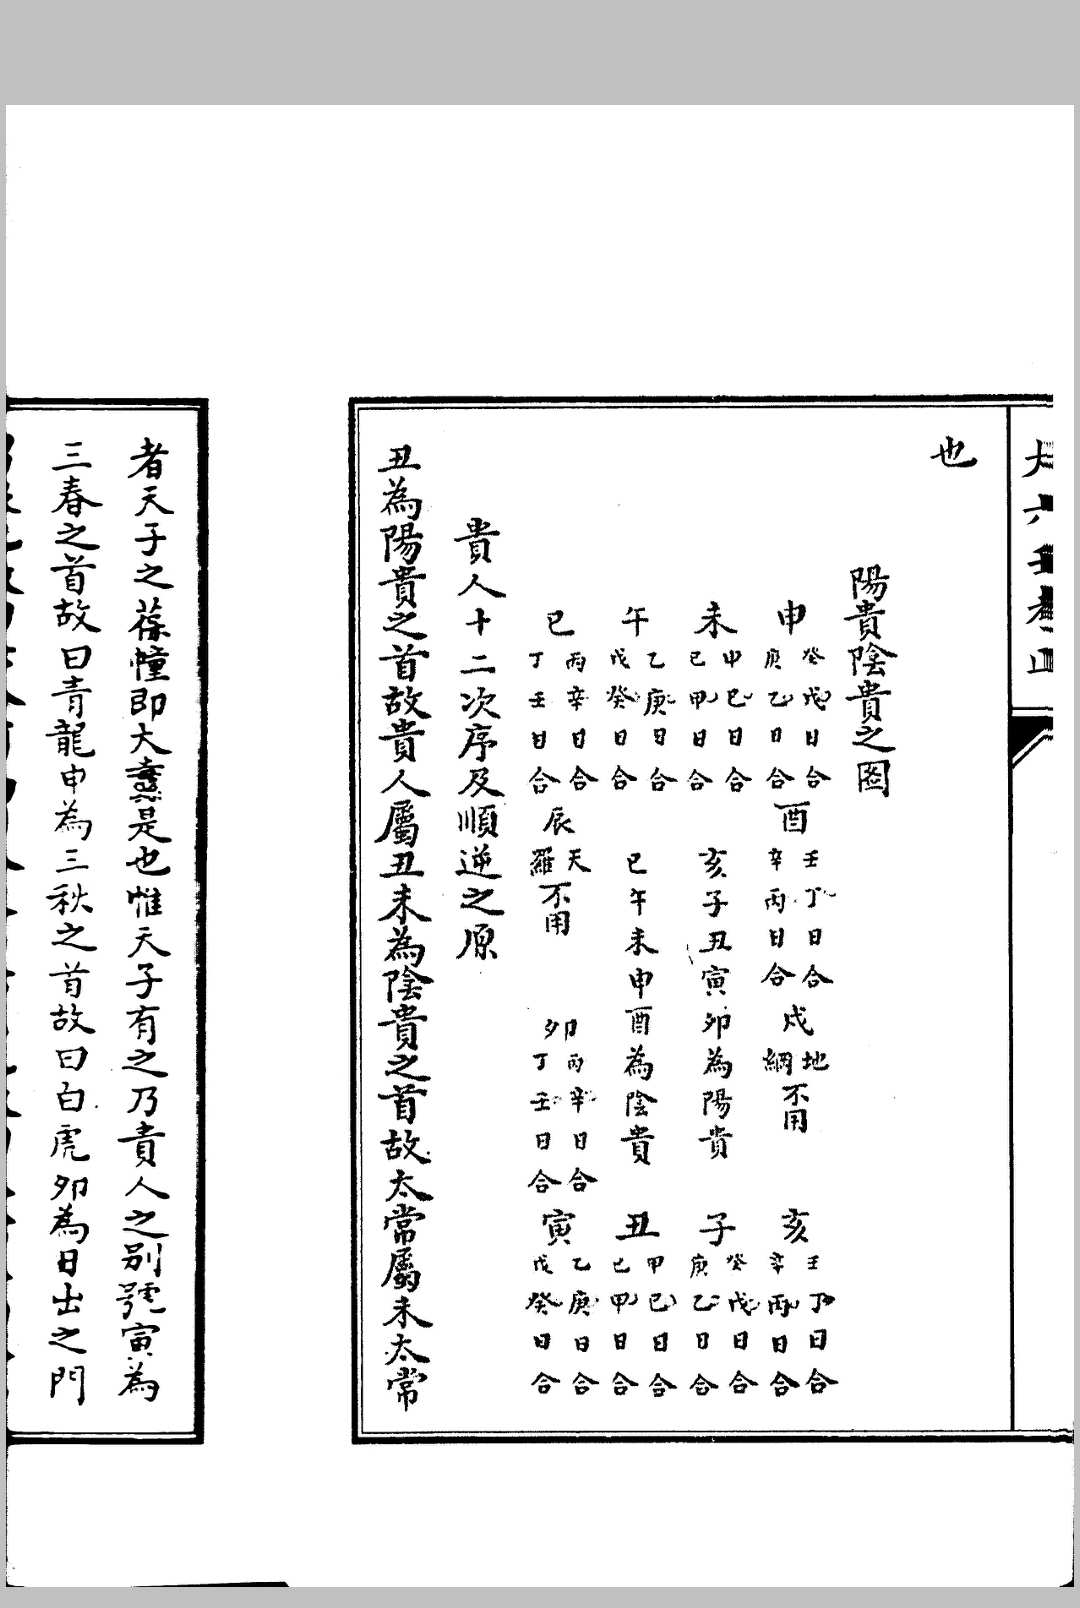 也
陽貴陰貴之圖
申 癸戊日合 庚乙日合
酉 壬丁日合 辛丙日合
戌 地網不用
亥 壬丁日合 辛丙日合
未 甲巳日合 己甲日合
亥子丑寅卯為陽貴
子 癸戊日合 庚乙日合
午 乙庚日合 戊癸日合
巳午未申酉為陰貴
丑 甲己日合 己甲日合
巳 丙辛日合 丁壬日合
辰 天羅不用
卯 丙辛日合 丁壬日合
寅 乙庚日合 戊癸日合
貴人十二次序及順逆之原
丑為陽貴之首故貴人屬丑未為陰貴之首故太常屬未太常
者天子之葆幢即大纛是也惟天子有之乃貴人之別號寅為
三春之首故曰青龍申為三秋之首故曰白虎卯為日出之門